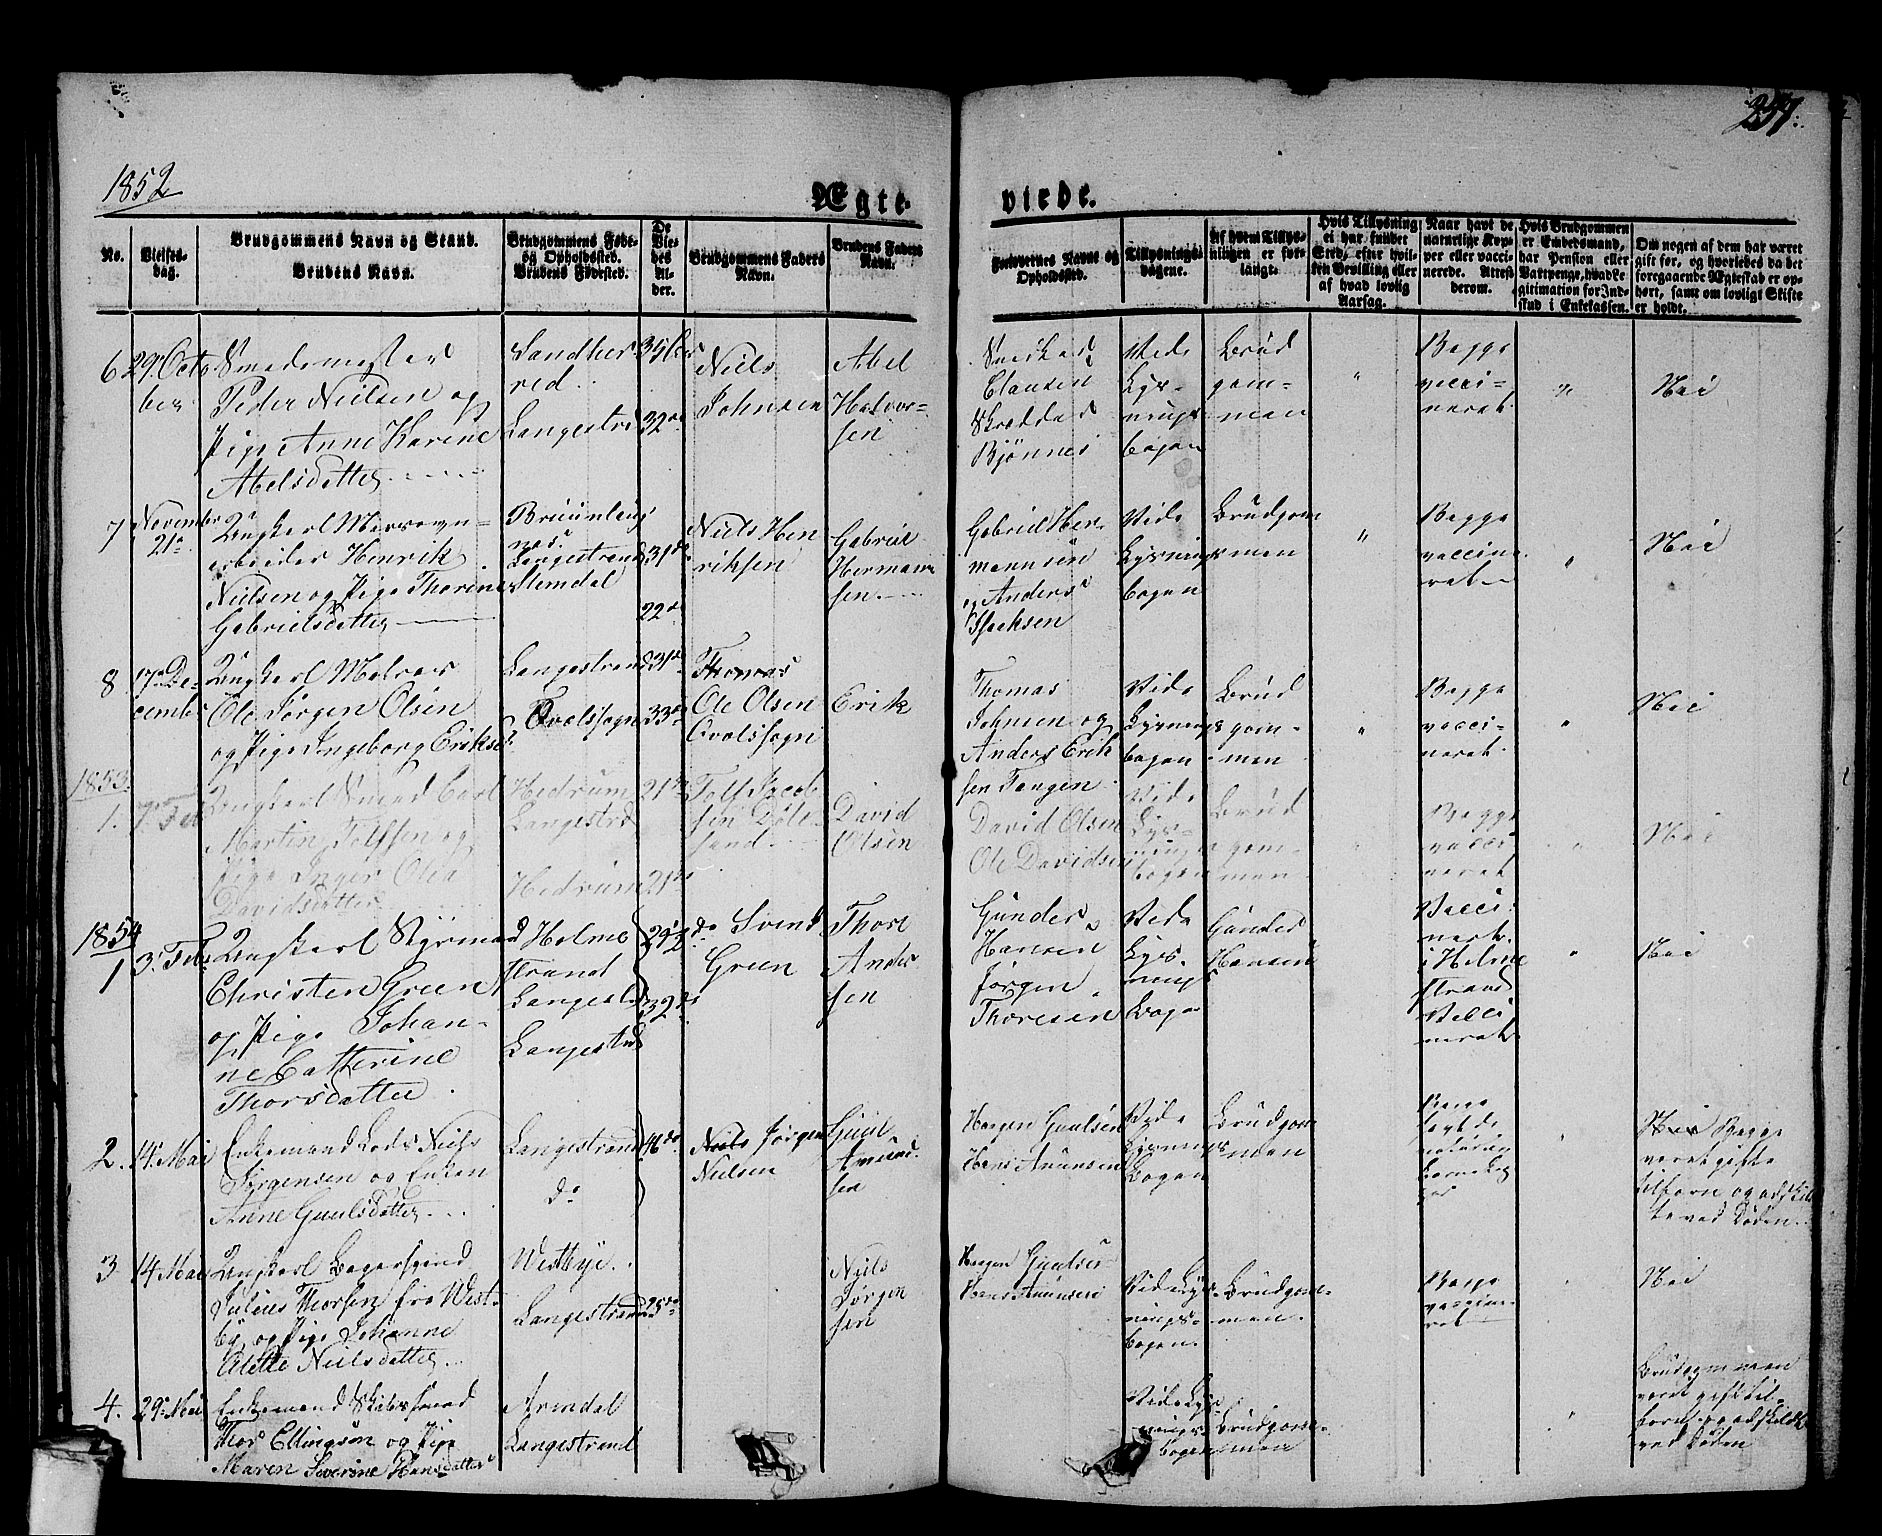 257.
1852
Ægte-
viede.
No.
Vielses-
dag.
Brudgommens Navn og Stand.
Brudens Navn.
Brudgommens Føde-
og Opholdssted.
Brudens Fødested.
De
Vie-
des
Al-
der.
Brudgommens Faders
Navn.
Brudens Faders
Navn.
Forlovernes Navne og
Opholdssted.
Tillysnings-
dagene.
Af hvem Tillys-
ningen er for-
langt.
Hvis Tillysning
ei har fundet
Sted, efter hvil-
ken Bevilling eller
af hvad lovlig
Aarsag.
Naar havt de
naturlige Kop-
per eller vacci-
nerede. Attest
derom.
Hvis Brudgommen
er Embedsmand,
har Pension eller
Vartpenge, hvad Le-
gitimation for Ind-
skud i Enkekassen.
Om nogen af dem har været
gift før, og hvorledes da det
foregaaende Ægteskab er op-
hørt, samt om lovligt Skifte
er holdt.
6
29 Octo
ber
Smedemester
Peder Nielsen og
Pige Anne Karine
Abelsdatter
Sandher
red
Langestrd
35
32
Niels
Johnsen
Abel
Halvor-
sen
Clausen
Bjønnes
Vide
Lys-
nings
bogen
Brud
gom-
men
"
Begge
vacci-
neret.
"
Nei
7
November
21
Ungkarl
arbeider Henrik
Nielsen og Pige Thorine
Gabrielsdatter
Langestrand
Slemdal
31
22
Niels Hen
riksen
Gabriel
Herman
sen
Gabriel Her-
mannsen
og Anders
Isacksen
Vide
Lysnings
bogen
Brudgom
men
"
Begge
vaccine
ret
"
Nei
8
17 De-
cember
Ungkarl Matros
Ole Jørgen Olsen
og Pige Ingeborg Eriksd.
Langestrand
Qvolssogn
31
33
Thomas
Ole Olsen
Qvolssogn
Erik
Thomas
Johnsen og
Anders Erik
sen Tangen
Vide
Lysnings
bogen
Brud
gom-
men
"
Begge
vacci-
neret.
"
Nei
1853
1.
7. Feb
Ungkarl Smed Carl
Martin Tolfsen og
Pige Inger Olea
Davidsdatter
Hedrum
Langestrd
Hedrum
21
21
Tolf Jacob
sen
David
Olsen
David Olsen
Ole Davidsen
Vide
Lys-
nings
bogen
Brud
gom-
men
Begge
vacci
neret
"
Nei
1854
1
3. Feb
Ungkarl Styrmand
Christen Green
og Pige Johan-
ne Catterine
Thorsdatter
Holme
strand
Langestrd
Langestrd
29½
32
Svend
Green
Thore
Ander
sen
Gunder
Hansen
Jørgen
Thoresen
Vide
Lys-
nings
Boge
Gunder
Hansen
Vacci-
nert
i Holme
strand
Vacci
neret
"
Nei
2.
14. Mai
Enkemand Lods Niels
Jørgensen og Enken
Anne Guulsdatter
Langestrand
do
46 do
Niels Jørgen
Nielsen
Guul
Amund
sen
Haagen Guulsen
Hans Amunsen
Vide
Lysnings
Bogen
Brudgom
men
"
Nei Begge
veret gifte
tilforn og adskil
te ved Døden
3
14 Mai
Ungkarl Bagersvend
Julius Thorsen fra West-
by og Pige Johanne
Alette Nielsdatter
Westbye
Langestrand
25
Niels
Jørgen
sen
Haagen Guulsen
Hans Amunsen
Vide Lys-
nings-
bogen
Brudgom-
men
Begge
vaccine-
ret
"
Nei
4.
29. Mai
Enkemand Skibssmed
Thor Ellingsøn og Pige
Maren Severine Hansdatter
Arendal
Langestrand
Vide Lys
nings
bogen
Brudgom-
men
"
Brudgommen
veret gift til-
forn og adskildt
ved Døden